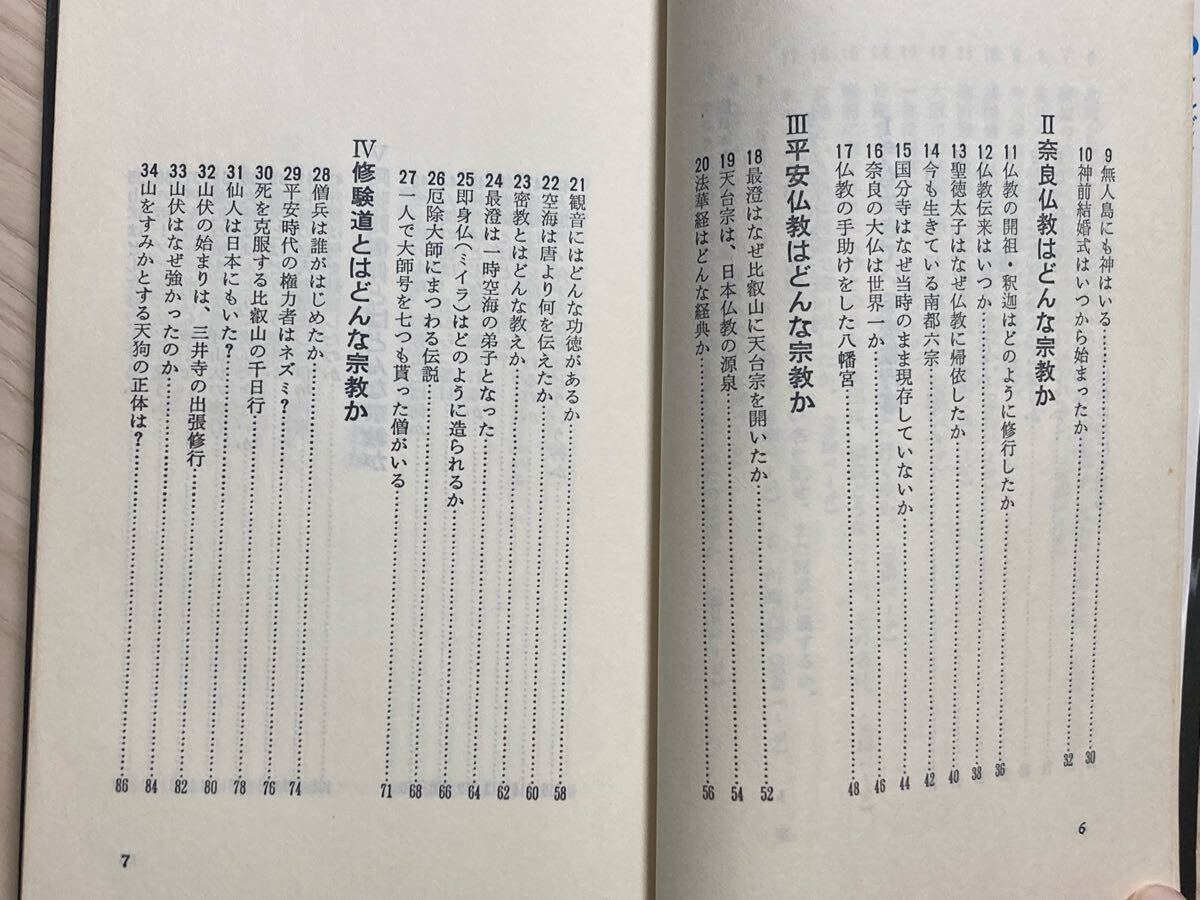 9 無人島にも神はいる 30
10 神前結婚式はいつから始まったか 32
Ⅱ 奈良仏教はどんな宗教か
11 仏教の開祖・釈迦はどのように修行したか 36
12 仏教伝来はいつか 38
13 聖徳太子はなぜ仏教に帰依したか 40
14 今も生きている南都六宗 42
15 国分寺はなぜ当時のまま現存していないか 44
16 奈良の大仏は世界一か 46
17 仏教の手助けをした八幡宮 48
Ⅲ 平安仏教はどんな宗教か
18 最澄はなぜ比叡山に天台宗を開いたか 52
19 天台宗は、日本仏教の源泉 54
20 法華経はどんな経典か 56
6
21 観音にはどんな功徳があるか 58
22 空海は唐より何を伝えたか 60
23 密教とはどんな教えか 62
24 最澄は一時空海の弟子となった 64
25 即身仏(ミイラ)はどのように造られるか 66
26 厄除大師にまつわる伝説 68
27 一人で大師号を七つも貰った僧がいる 71
Ⅳ 修験道とはどんな宗教か
28 僧兵は誰がはじめたか 74
29 平安時代の権力者はネズミ? 76
30 死を克服する比叡山の千日行 76
31 仙人は日本にもいた? 78
32 山伏の始まりは、三井寺の出張修行 80
33 山伏はなぜ強かったのか 82
34 山をすみかとする天狗の正体は? 86
7